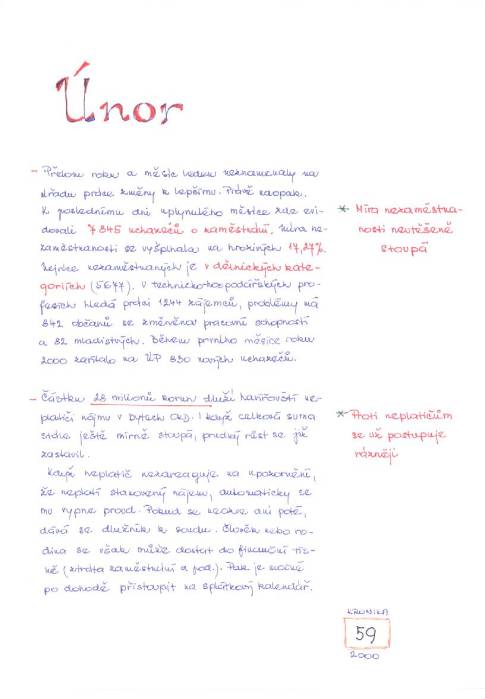 Únor
- Přelom roku a měsíc leden neznamenaly na
úřadu práce změny k lepšímu. Právě naopak.
K poslednímu dni uplynulého měsíce zde evi-
dovali 7 845 uchazečů o zaměstnání. Míra ne-
zaměstnanosti se vyšplhala na hrozivých 17,27%.
Nejvíce nezaměstnaných je v dělnických kate-
goriích (5677). V technicko-hospodářských pro-
fesích hledá práci 1244 zájemců, problémy má
842 občanů se změněnou pracovní schopností
a 82 mladistvých. Během prvního měsíce roku
2000 zavítalo na ÚP 830 nových uchazečů.
* Míra nezaměstna-
nosti neutěšeně
stoupá
- Částku 28 milionů korun dluží havířovští ne-
platiči nájmu v bytech OKD. I když celková suma
stále ještě mírně stoupá, prudký růst se již
zastavil.
Když neplatič nezareaguje na upozornění,
že neplatí stanovený nájem, automaticky se
mu vypne proud. Pokud se neozve ani poté,
dává se dlužník k soudu. Člověk nebo ro-
dina se však může dostat do finanční tís-
ně (ztráta zaměstnání a pod.). Pak je možné
po dohodě přistoupit na splátkový kalendář.
* Proti neplatičům
se už postupuje
rázněji
KRONIKA
59
2000